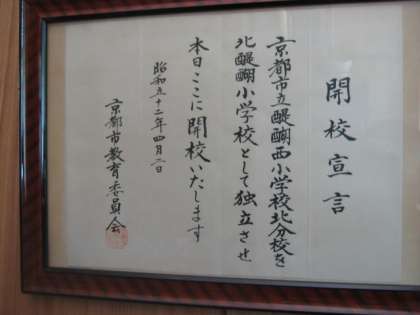 開校宣言
京都市立醍醐西小学校北分校を
北醍醐小学校として独立させ
本日ここに開校いたします
昭和五十二年四月二日
京都市教育委員会